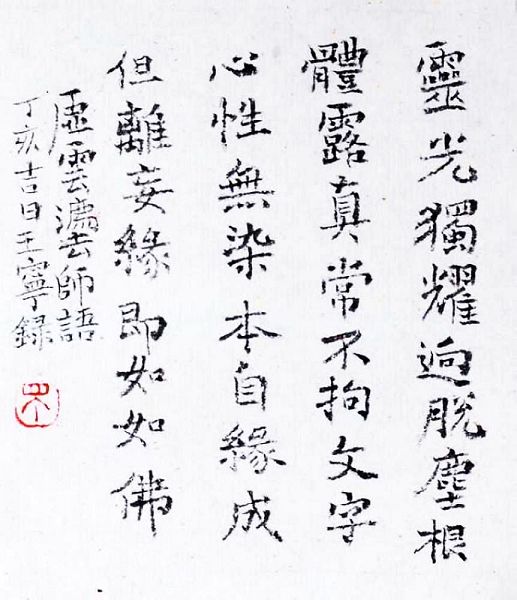 靈光獨耀逈脫塵根
體露真常不拘文字
心性無染本自緣成
但離妄緣即如如佛
虛雲灋師語
丁亥吉日王寧錄